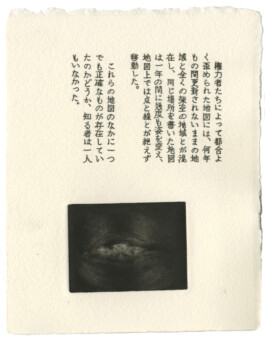 権力者たちによって都合よ
く歪められた地図には、何年
もの間更新されないままの地
域と全くの架空の地域とが混
在し、同じ場所を書いた地図
は一年の間に幾度も姿を変え、
地図上では点と線とが絶えず
移動した。
これらの地図のなかに一つ
でも正確なものが存在してい
たのかどうか、知る者は一人
もいなかった。